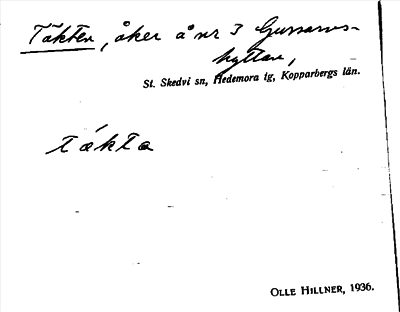 Täkten, åker å nr 3 Gussarvs-
hyttan,
St. Skedvi sn, Hedemora tg, Kopparbergs län.
tákta
OLLE HILLNER, 1936.